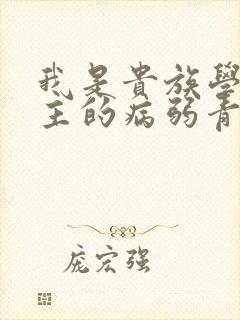 我是貴族學
主的病弱青
庞宏强